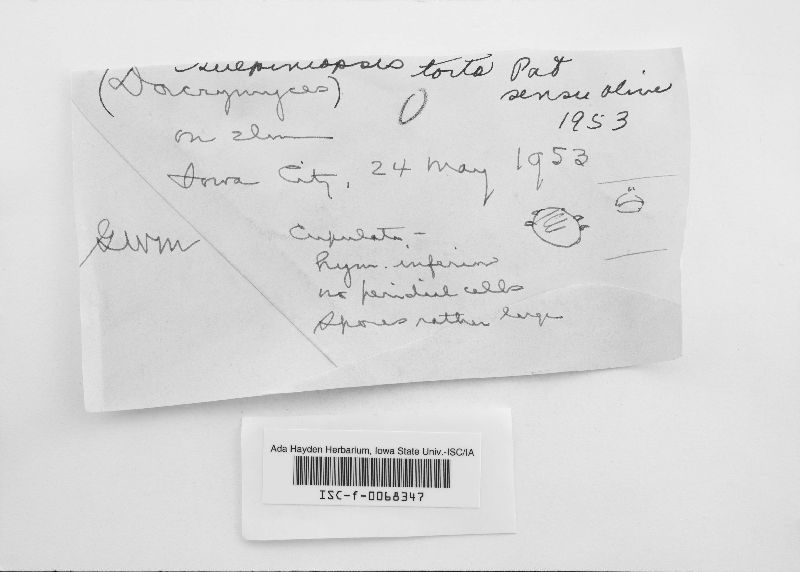 Guepiniopsis torta Pat
(Dacrymyces) sensu Olive
1953
on elm
Iowa City, 24 May 1953
GWM
Cupulata, -
hym. inferior
no peridial cells
spores rather large
Ada Hayden Herbarium, Iowa State Univ.-ISC/IA
ISC-f-0068347